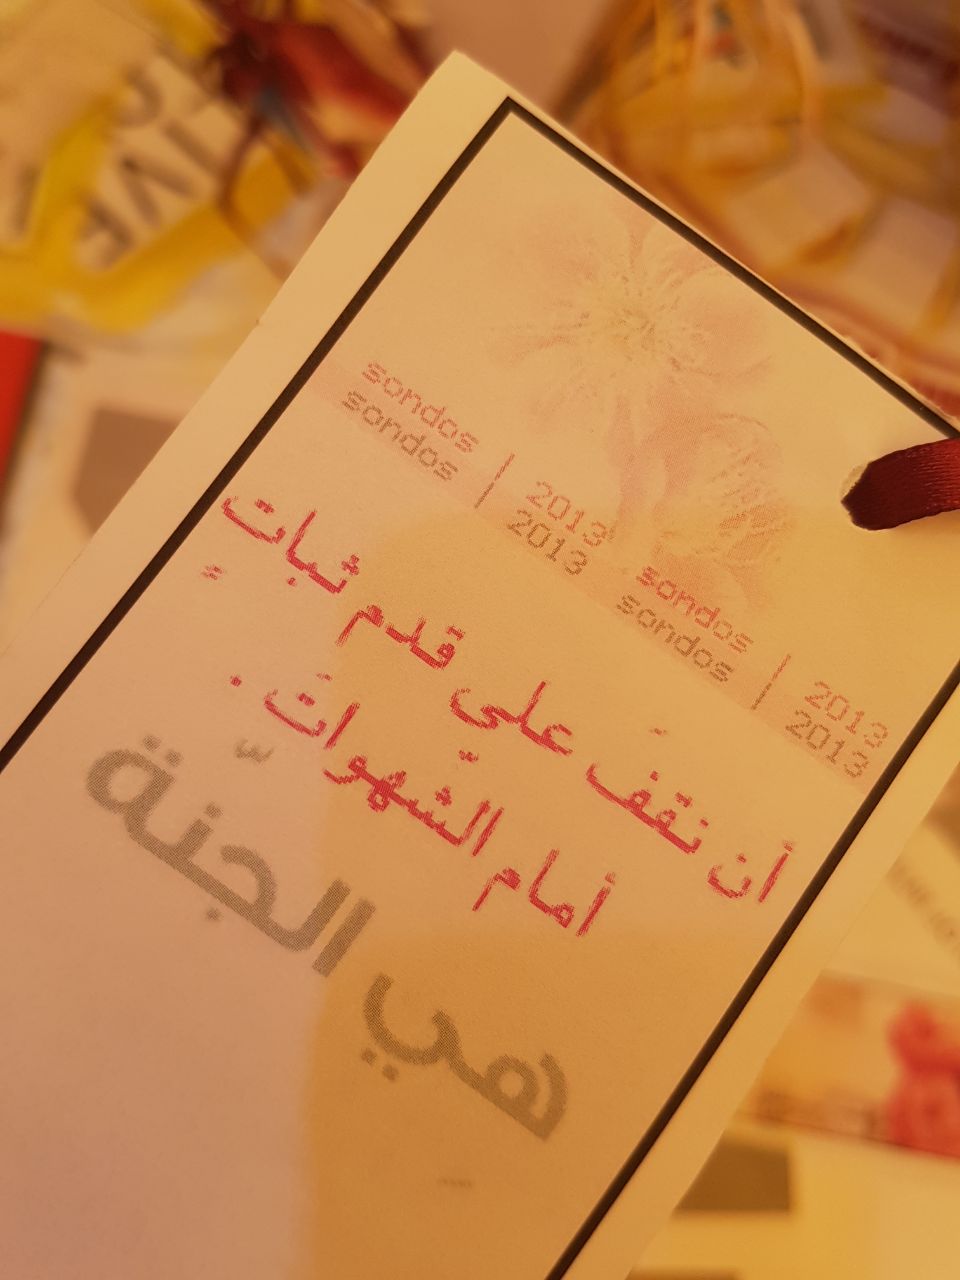 sondos | 2013 sondos | 2013
sondos | 2013 sondos | 2013
أن نقفَ علي قدم ثباتٍ
أمام الشهواتَ .
هي الجنّة
...